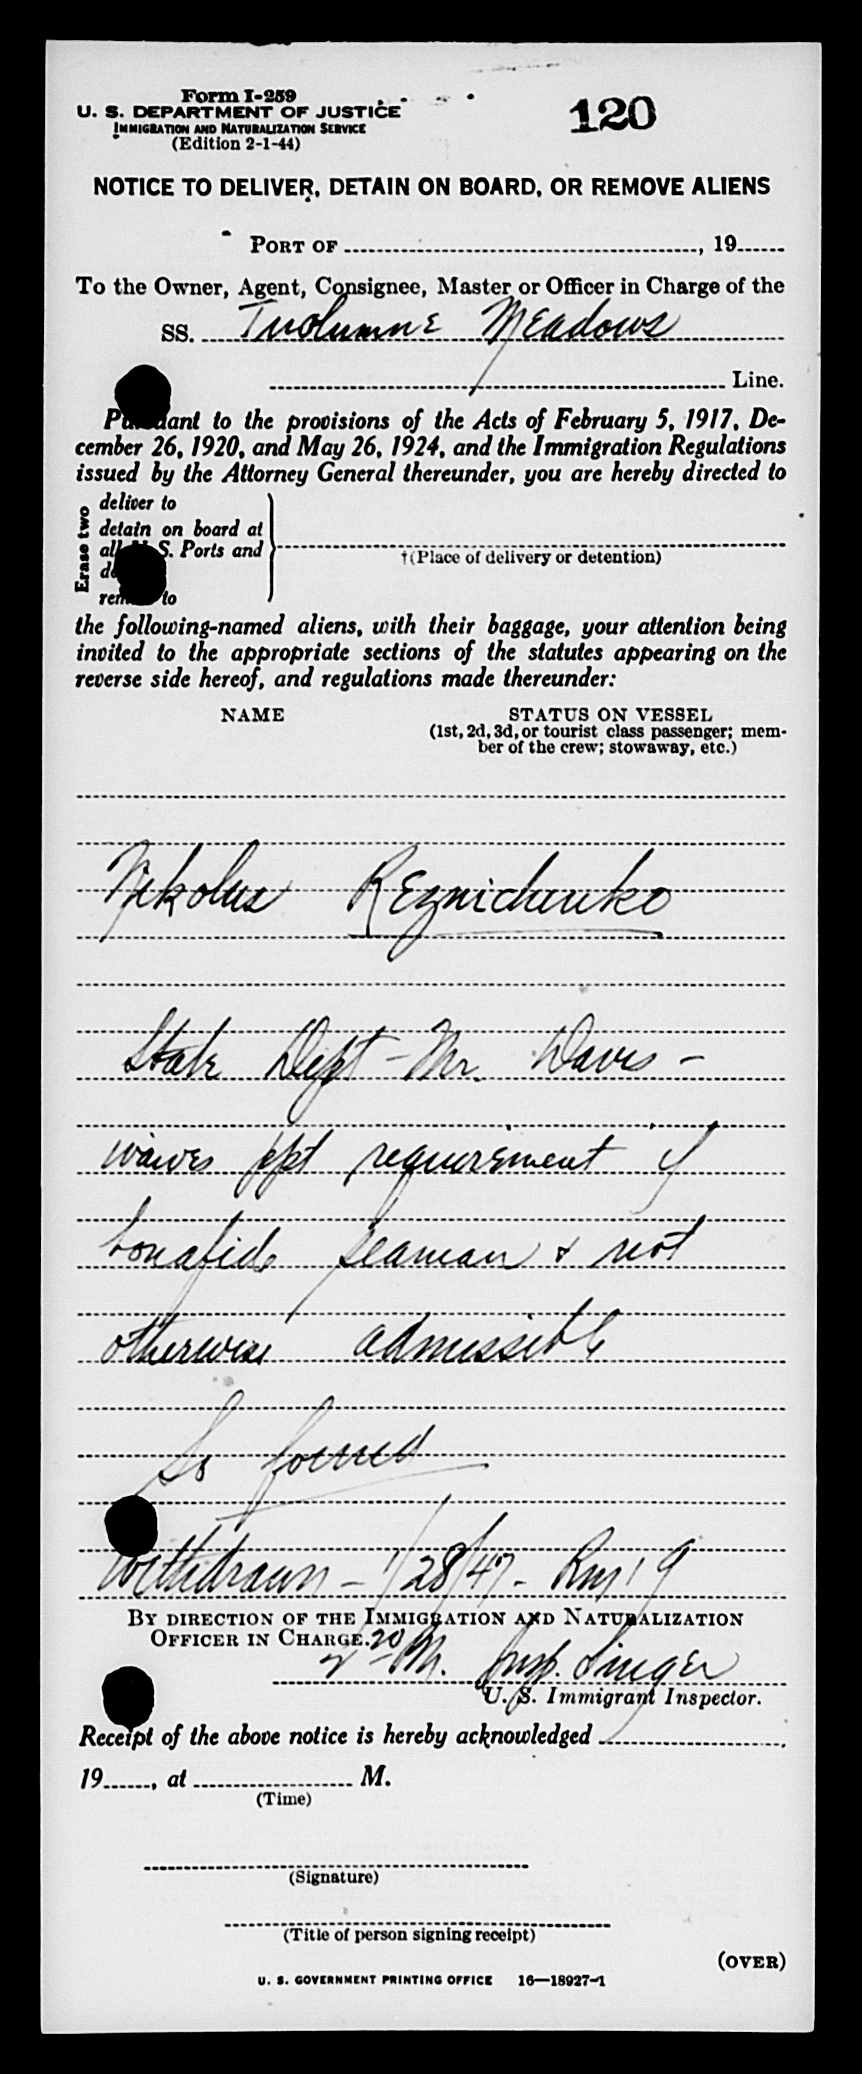 Form I-259
U. S. DEPARTMENT OF JUSTICE
IMMIGRATION AND NATURALIZATION SERVICE
(Edition 2-1-44)
120
NOTICE TO DELIVER, DETAIN ON BOARD, OR REMOVE ALIENS
PORT OF , 19
To the Owner, Agent, Consignee, Master or Officer in Charge of the
SS. Tuolumne Meadows
Line.
Pursuant to the provisions of the Acts of February 5, 1917, De-
cember 26, 1920, and May 26, 1924, and the Immigration Regulations
issued by the Attorney General thereunder, you are hereby directed to
Erase two
deliver to
detain on board at
all U. S. Ports and
†(Place of delivery or detention)
remove to
the following-named aliens, with their baggage, your attention being
invited to the appropriate sections of the statutes appearing on the
reverse side hereof, and regulations made thereunder:
NAME STATUS ON VESSEL
(1st, 2d, 3d, or tourist class passenger; mem-
ber of the crew; stowaway, etc.)
Nikolus Reznichenko
State Dept - Mr. Davis -
waives ppt requirement if
bonafide seaman & not
otherwise admissible
So found
Withdrawn - 1/28/47 -
BY DIRECTION OF THE IMMIGRATION AND NATURALIZATION
OFFICER IN CHARGE.
M. Insp. Singer
U. S. Immigrant Inspector.
Receipt of the above notice is hereby acknowledged
19 , at M.
(Time)
(Signature)
(Title of person signing receipt)
(OVER)
U. S. GOVERNMENT PRINTING OFFICE 16—18927-1